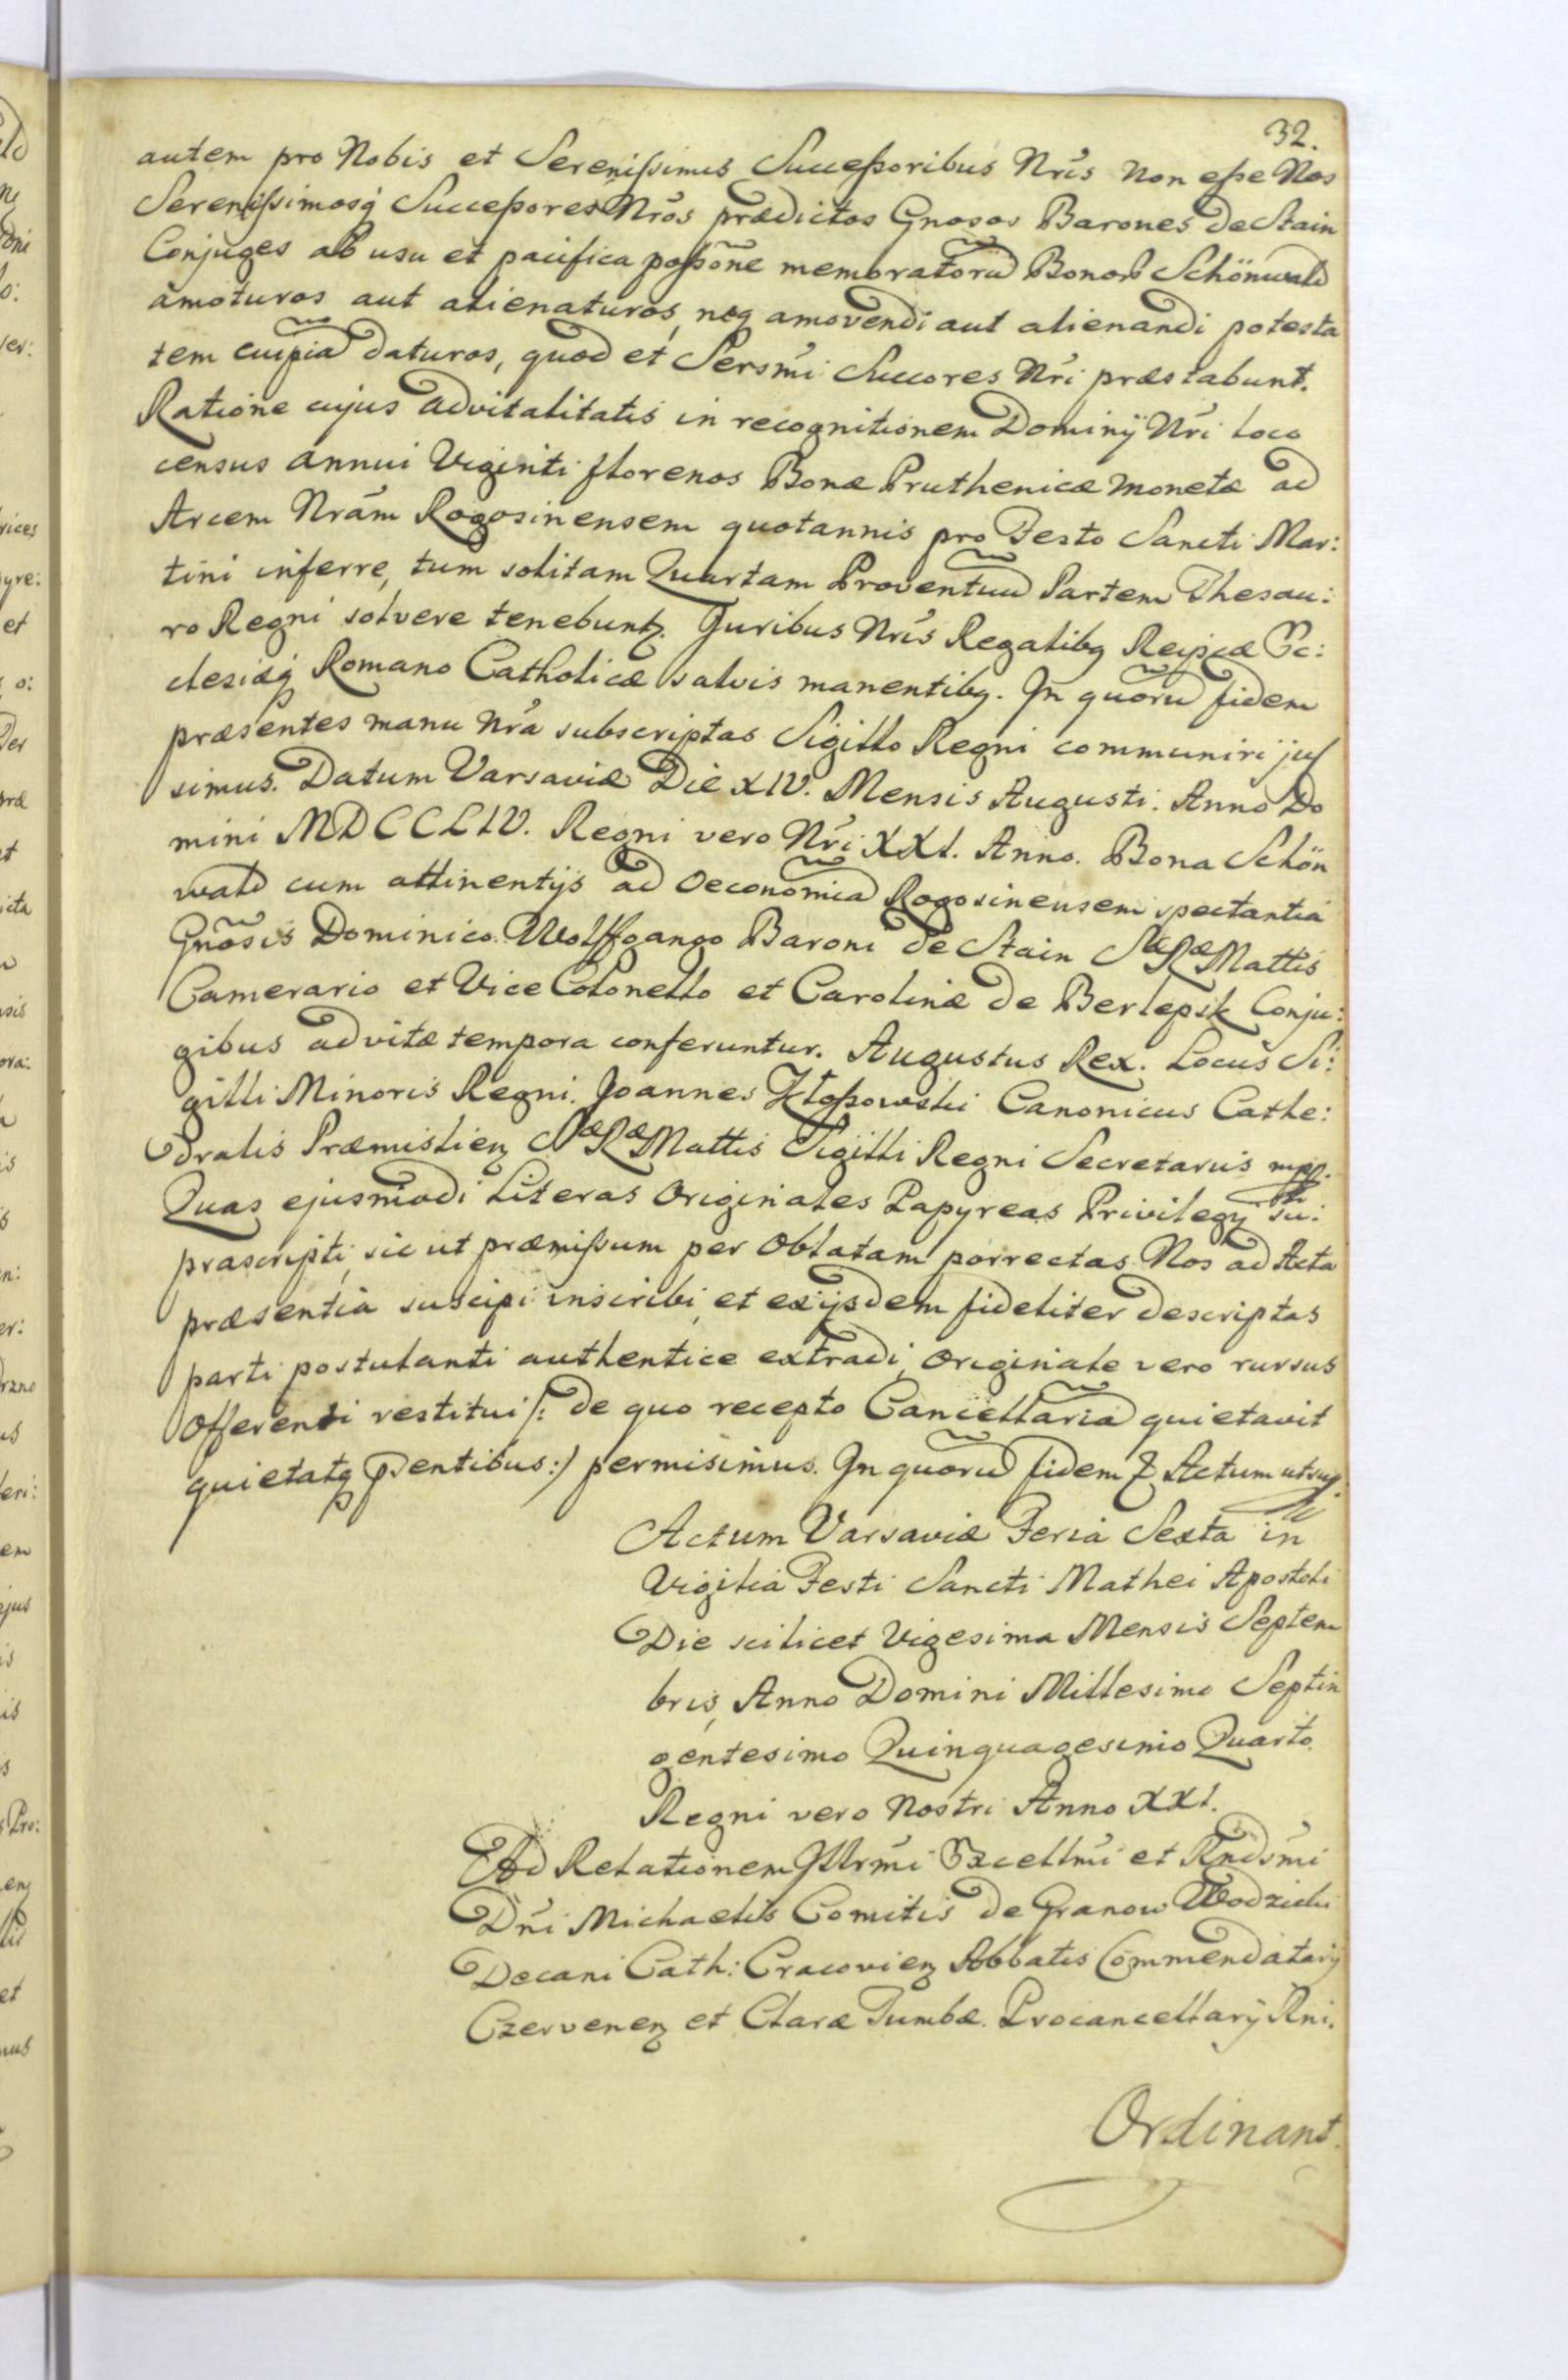 32.
autem pro Nobis et Serenißimis Succeßoribus Nris non eße Nos
Serenißimosq Succeßores Nros prædictos Gnosos Barones de Stain
Conjuges ab usu et pacifica poßone memoratoru Bonor Schönwald
amoturos aut alienaturos, neq amovendi aut alienandi potesta
tem cuipia daturos, quod et Sersmi Succores Nri præstabunt.
Ratione cujus advitalitatis in recognitionem Dominij Nri loco
census annui Viginti florenos Bonæ Pruthenicæ Monetæ ad
Arcem Nram Rogosinensem quotannis pro Festo Sancti Mar:
tini inferre, tum solitam Quartam Proventuu Partem Thesau:
ro Regni solvere tenebuntz. Juribus Nris Regalibq Reipcæ Ec:
clesiæq Romano Catholicæ salvis manentibq. In quoru fidem
præsentes manu Nra subscriptas Sigillo Regni communiri jus
simus. Datum Varsaviæ Die XIV. Mensis Augusti. Anno Do
mini MDCCLIV. Regni vero Nri XXI. Anno. Bona Schön
wald cum attinentijs ad Oeconomia Rogosinensem spectantia
Gnosis Dominico Wolffgango Baroni de Stain SæRæMattis
Camerario et Vice Colonello et Carolinæ de Berlepsk Conju:
gibus ad vitæ tempora conferuntur. Augustus Rex. Locus Si:
gilli Minoris Regni. Joannes Kłoßowski Canonicus Cathe:
dralis Præmislienz SæRæMattis Sigilli Regni Secretarius mpp.
Quas ejusmodi Literas Originales Papyreas Privilegy su:
prascripti, sic ut præmißum per Oblatam porrectas Nos ad Acta
præsentia suscipi inscribi, et ex ijsdem fideliter descriptas
parti postulanti authentice extradi, Originale vero rursus
Offerenti restitui /: de quo recepto Cancellaria quietavit
quietatq psentibus :/ permisimus. In quoru fidem & Actum utsup.
Actum Varsaviæ Feria Sexta in
Vigilia Festi Sancti Mathei Apostoli
Die scilicet Vigesima Mensis Septem
bris, Anno Domini Millesimo Septin
gentesimo Quinquagesimo Quarto.
Regni vero Nostri Anno XXI.
Ad Relationem Illrmi Excellmi et Rndsmi
Dni Michaelis Comitis de Granow Wodzicki
Decani Cath: Cracovienz Abbatis Commendatarij
Czervenenz et Claræ Tumbæ. Procancellarij Rni.
Ordinant.